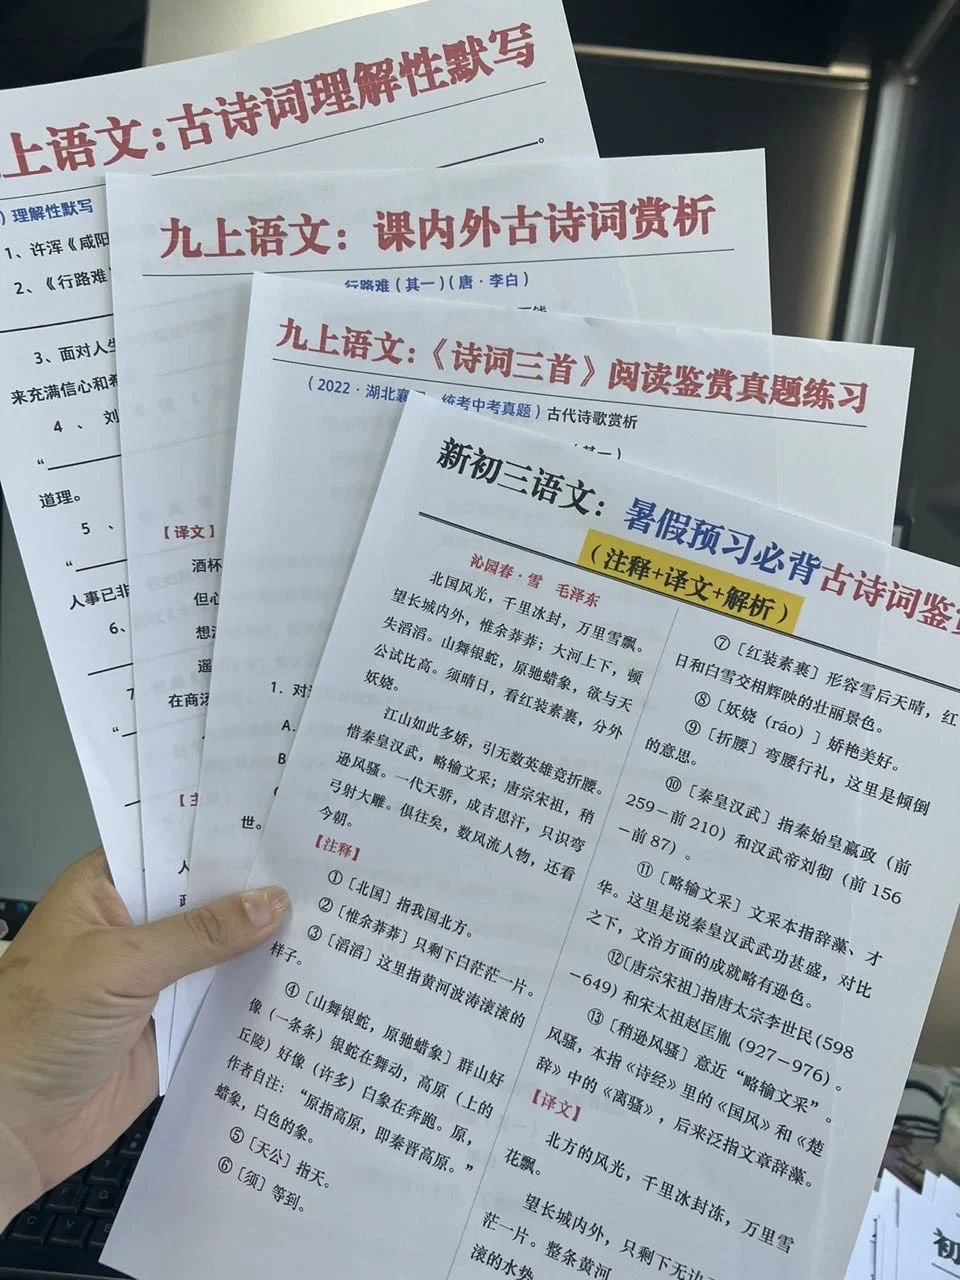 上语文：古诗词理解性默写
）理解性默写
1、许浑《咸阳
2、《行路难
3、面对人生
来充满信心和希
4、刘
“
道理。
5、
“
人事已非
6、
7
“
九上语文：课内外古诗词赏析
行路难（其一）（唐·李白）
【译文】
酒杯
但心
想
遥
在商汤
【主
人
九上语文：《诗词三首》阅读鉴赏真题练习
（2022·湖北襄 统考中考真题）古代诗歌赏析
（其一）
1．对
A.
B
世。
新初三语文：暑假预习必背古诗词鉴赏
（注释+译文+解析）
沁园春·雪 毛泽东
北国风光，千里冰封，万里雪飘。
望长城内外，惟余莽莽；大河上下，顿
失滔滔。山舞银蛇，原驰蜡象，欲与天
公试比高。须晴日，看红装素裹，分外
妖娆。
江山如此多娇，引无数英雄竞折腰。
惜秦皇汉武，略输文采；唐宗宋祖，稍
逊风骚。一代天骄，成吉思汗，只识弯
弓射大雕。俱往矣，数风流人物，还看
今朝。
【注释】
①［北国］指我国北方。
②［惟余莽莽］只剩下白茫茫一片。
③［滔滔］这里指黄河波涛滚滚的
样子。
④［山舞银蛇，原驰蜡象］群山好
像（一条条）银蛇在舞动，高原（上的
丘陵）好像（许多）白象在奔跑。原，
作者自注：“原指高原，即秦晋高原。”
蜡象，白色的象。
⑤［天公］指天。
⑥［须］等到。
⑦［红装素裹］形容雪后天晴，红
日和白雪交相辉映的壮丽景色。
⑧［妖娆（ráo）］娇艳美好。
⑨［折腰］弯腰行礼，这里是倾倒
的意思。
⑩［秦皇汉武］指秦始皇嬴政（前
259－前 210）和汉武帝刘彻（前 156
－前 87）。
⑪［略输文采］文采本指辞藻、才
华。这里是说秦皇汉武武功甚盛，对比
之下，文治方面的成就略有逊色。
⑫［唐宗宋祖］指唐太宗李世民（598
－649）和宋太祖赵匡胤（927－976）。
⑬［稍逊风骚］意近“略输文采”。
风骚，本指《诗经》里的《国风》和《楚
辞》中的《离骚》，后来泛指文章辞藻。
【译文】
北方的风光，千里冰封冻，万里雪
花飘。
望长城内外，只剩下无边
茫一片。整条黄河
滚的水势
初